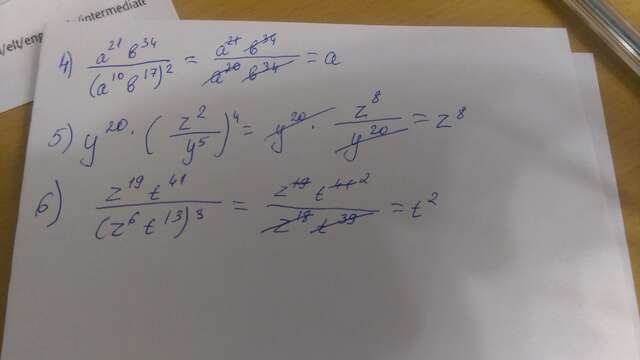 /elt/eng
/intermediate
4) a²¹ b³⁴ / (a¹⁰ b¹⁷)² = a²¹ b³⁴ / a²⁰ b³⁴ = a
5) y²⁰ · (z² / y⁵)⁴ = y²⁰ · z⁸ / y²⁰ = z⁸
6) z¹⁹ t⁴¹ / (z⁶ t¹³)³ = z¹⁹ t⁴¹ ² / z¹⁸ t³⁹ = t²